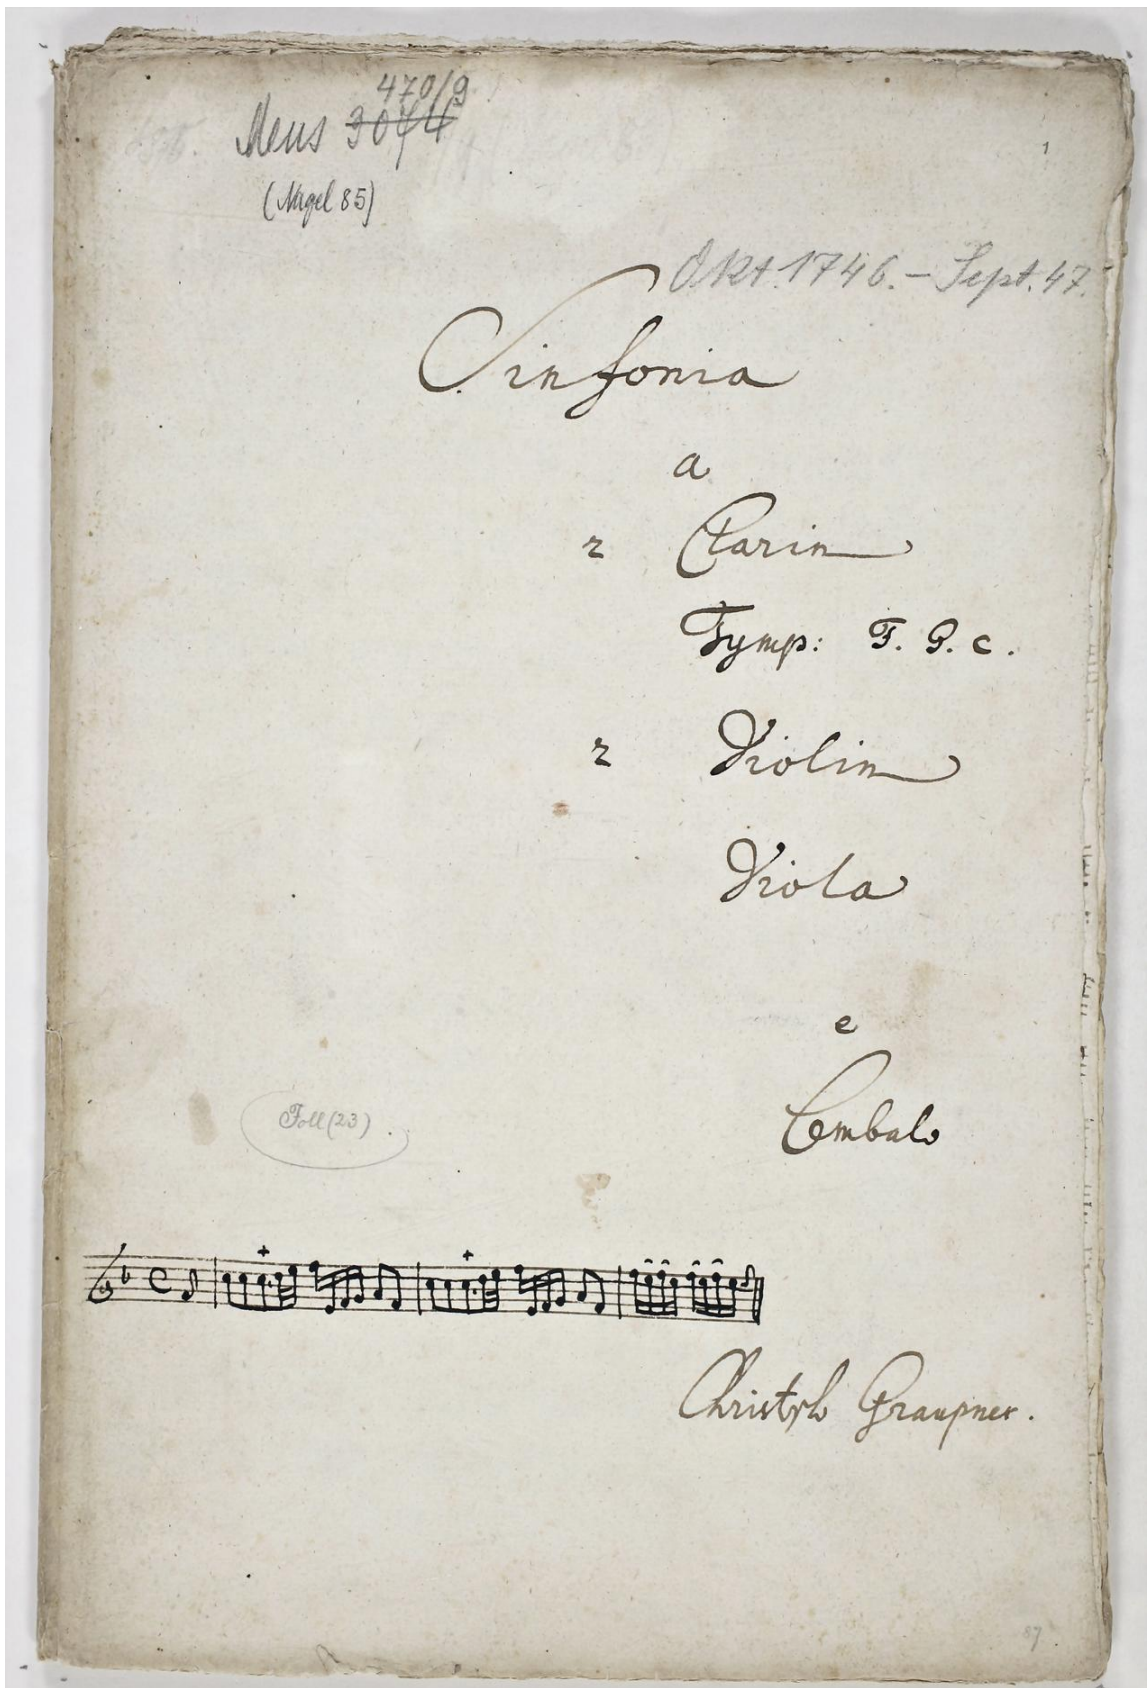 470/9
Mus 3074
(Nagel 85)
1
Okt. 1746. – Sept. 47.
Sinfonia
a
2 Clarin
Tymp: F. G. c.
2 Violin
Viola
e
Cembalo
Foll (23)
Christoph Graupner.
87